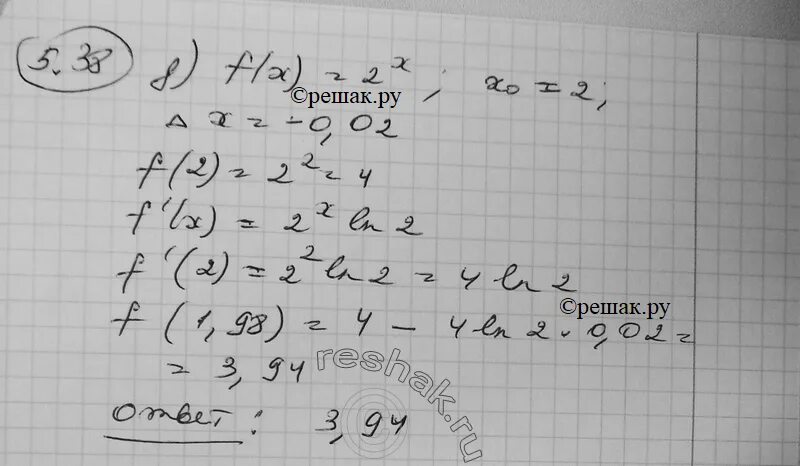 5.38 в) f(x) = 2^x; x₀ = 2;
©решак.ру
Δx = -0,02
f(2) = 2² = 4
f'(x) = 2^x ln 2
f'(2) = 2² ln 2 = 4 ln 2
©решак.ру
f(1,98) = 4 - 4 ln 2 · 0,02 =
= 3,94
reshak.ru
Ответ: 3,94